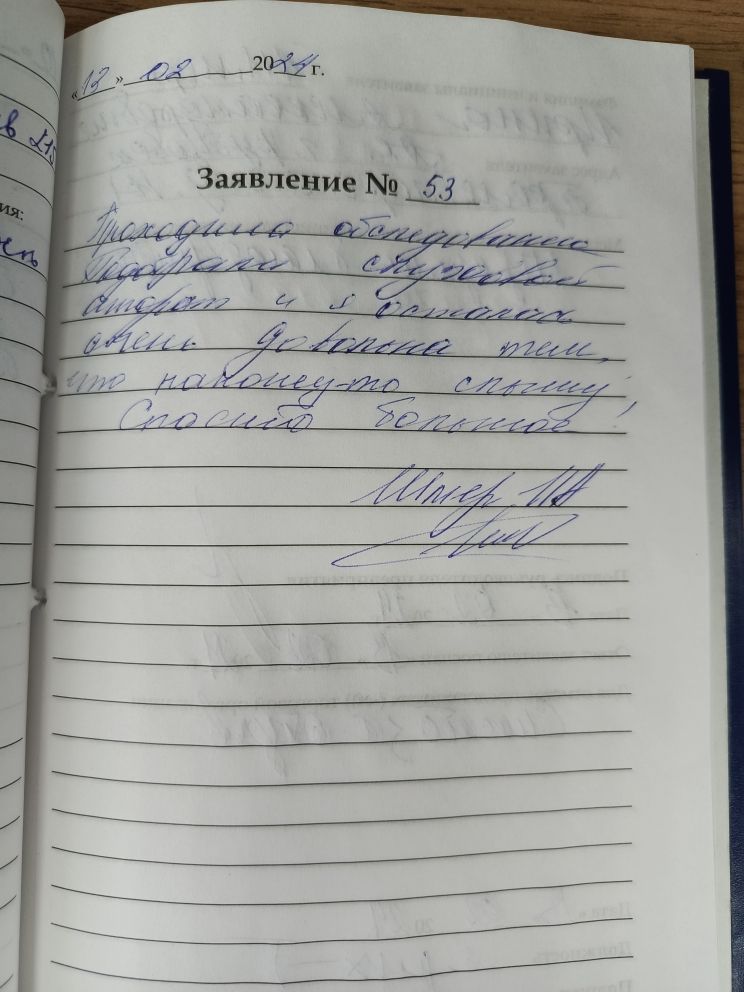 «13» 02 2024 г.
Заявление № 53
Проходила обследование
Подобрали слуховой
аппарат и я осталась
очень довольна тем,
что наконец-то слышу!
Спасибо большое
Штер